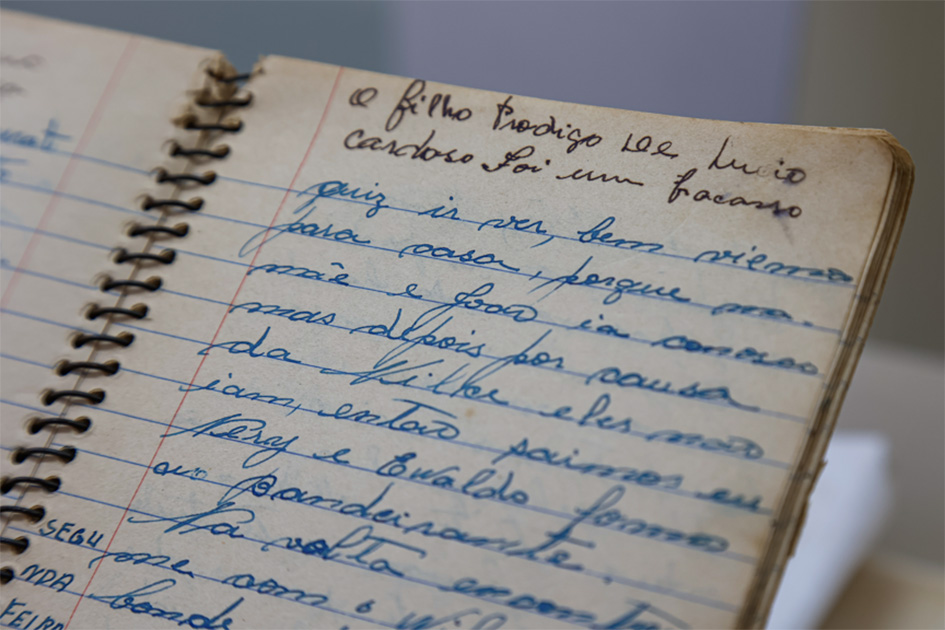 O filho Prodigo de Lucio
Cardoso Foi um fracasso
quiz ir ver, bem viemos
para casa, porque ma-
mãe e João ia conosco
mas depois por causa
da Nilke eles não
iam, então saimos eu
Nery e Ewaldo fomos
ao Bandeirante.
Na volta encontrei
me com o
bonde
SEGU
NDA
FEIRA